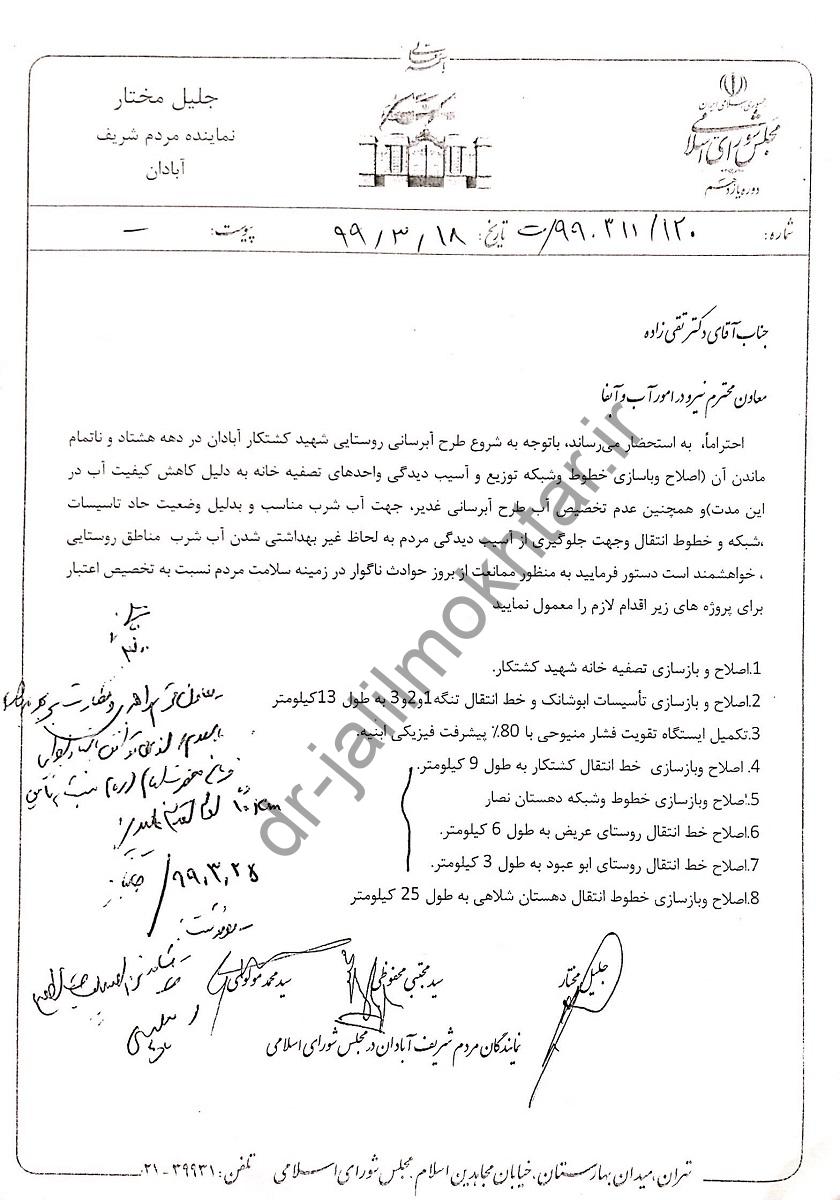 جمهوری اسلامی ایران
مجلس شورای اسلامی
دوره یازدهم
جلیل مختار
نماینده مردم شریف
آبادان
شماره: ۱۲۰/۹۹.۳۱۱/ت تاریخ: ۹۹/۳/۱۸ پیوست: –
جناب آقای دکتر تقی زاده
معاون محترم نیرو در امور آب و آبفا
احتراماً، به استحضار می‌رساند، باتوجه به شروع طرح آبرسانی روستایی شهید کشتکار آبادان در دهه هشتاد و ناتمام
ماندن آن (اصلاح وباسازی خطوط وشبکه توزیع و آسیب دیدگی واحدهای تصفیه خانه به دلیل کاهش کیفیت آب در
این مدت)و همچنین عدم تخصیص آب طرح آبرسانی غدیر، جهت آب شرب مناسب و بدلیل وضعیت حاد تاسیسات
،شبکه و خطوط انتقال وجهت جلوگیری از آسیب دیدگی مردم به لحاظ غیر بهداشتی شدن آب شرب مناطق روستایی
، خواهشمند است دستور فرمایید به منظور ممانعت از بروز حوادث ناگوار در زمینه سلامت مردم نسبت به تخصیص اعتبار
برای پروژه های زیر اقدام لازم را معمول نمایید
1.اصلاح و بازسازی تصفیه خانه شهید کشتکار.
2.اصلاح و بازسازی تأسیسات ابوشانک و خط انتقال تنگه1و2و3 به طول 13کیلومتر
3.تکمیل ایستگاه تقویت فشار منیوحی با 80٪ پیشرفت فیزیکی ابنیه.
4. اصلاح وبازسازی خط انتقال کشتکار به طول 9 کیلومتر.
5.اصلاح وبازسازی خطوط وشبکه دهستان نصار
6.اصلاح خط انتقال روستای عریض به طول 6 کیلومتر.
7.اصلاح خط انتقال روستای ابو عبود به طول 3 کیلومتر.
8.اصلاح وبازسازی خطوط انتقال دهستان شلاهی به طول 25 کیلومتر
۹۹,۳,۲۵
جلیل مختار
سید مجتبی محفوظی
سید محمد مولوی
نمایندگان مردم شریف آبادان در مجلس شورای اسلامی
تهران، میدان بهارستان، خیابان مجاهدین اسلام. مجلس شورای اسلامی تلفن: ۳۹۹۳۱-۰۲۱
dr-jalilmokhtar.ir